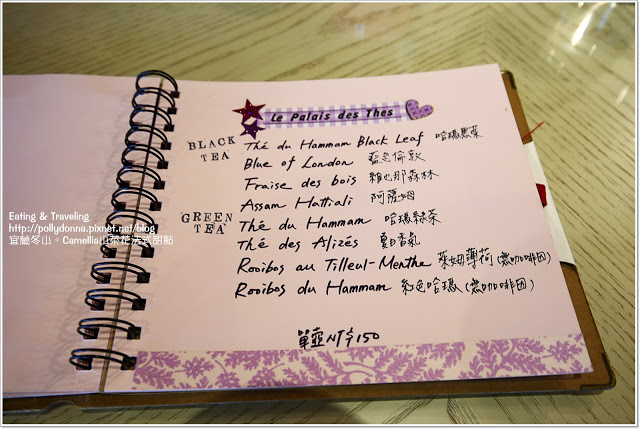 Le Palais des Thés
BLACK TEA
Thé du Hammam Black Leaf 哈瑪黑葉
Blue of London 藍色倫敦
Fraise des bois 維也那森林
Assam Hattiali 阿薩姆
GREEN TEA
Thé du Hammam 哈瑪綠茶
Thé des Alizés 夏日香氣
Rooibos au Tilleul-Menthe 萊姆薄荷(無咖啡因)
Rooibos du Hammam 紅色哈瑪(無咖啡因)
單壺NT$150
Eating & Traveling
http://pollydonna.pixnet.net/blog
宜蘭冬山。Camellia山茶花法式甜點